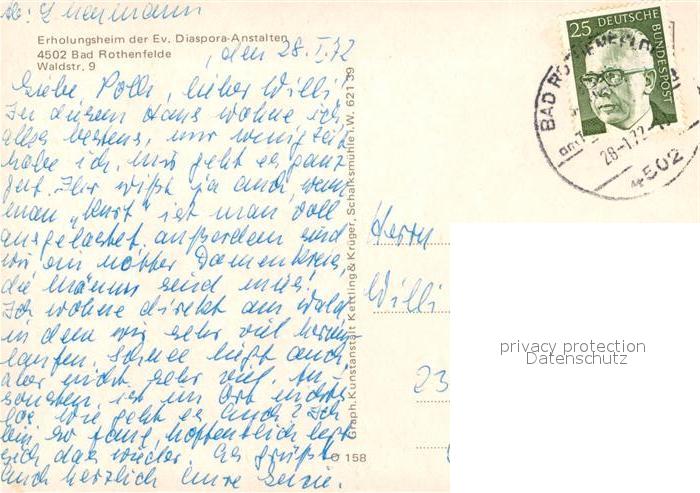 Erholungsheim der Ev. Diaspora-Anstalten
4502 Bad Rothenfelde
Waldstr. 9
, den 28. I. 72
Liebe Polli, lieber Willi!
In diesem Haus wohne ich
alles bestens, nur wenig Zeit
habe ich, mir geht es ganz
gut. Ihr wißt ja auch, wenn
man "kurt" ist man voll
ausgelastet, außerdem sind
wir ein netter Damenkreis,
die Männer sind mies!
Ich wohne direkt am Wald
in dem wir sehr viel herum
laufen. Schnee liegt auch,
aber nicht sehr viel. An-
sonsten ist im Ort nichts
los. Wie geht es Euch? Ich
bin so lang, hoffentlich legt
sich das wieder. Es grüßt
Euch herzlich Eure
Graph. Kunstanstalt Kettling & Krüger, Schalksmühle i.W. 621 39
O 158
25 DEUTSCHE BUNDESPOST
BAD ROTHENFELDE
28-1.72
4502
Herrn
Willi
23
privacy protection
Datenschutz